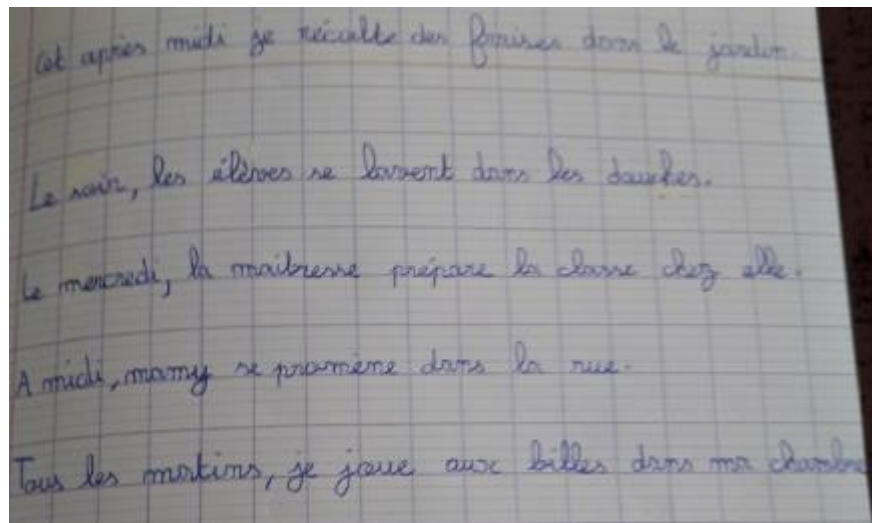 Cet après midi je récolte des fraises dans le jardin.
Le soir, les élèves se lavent dans les douches.
Le mercredi, la maitresse prépare la classe chez elle.
A midi, mamy se promène dans la rue.
Tous les matins, je joue aux billes dans ma chambre